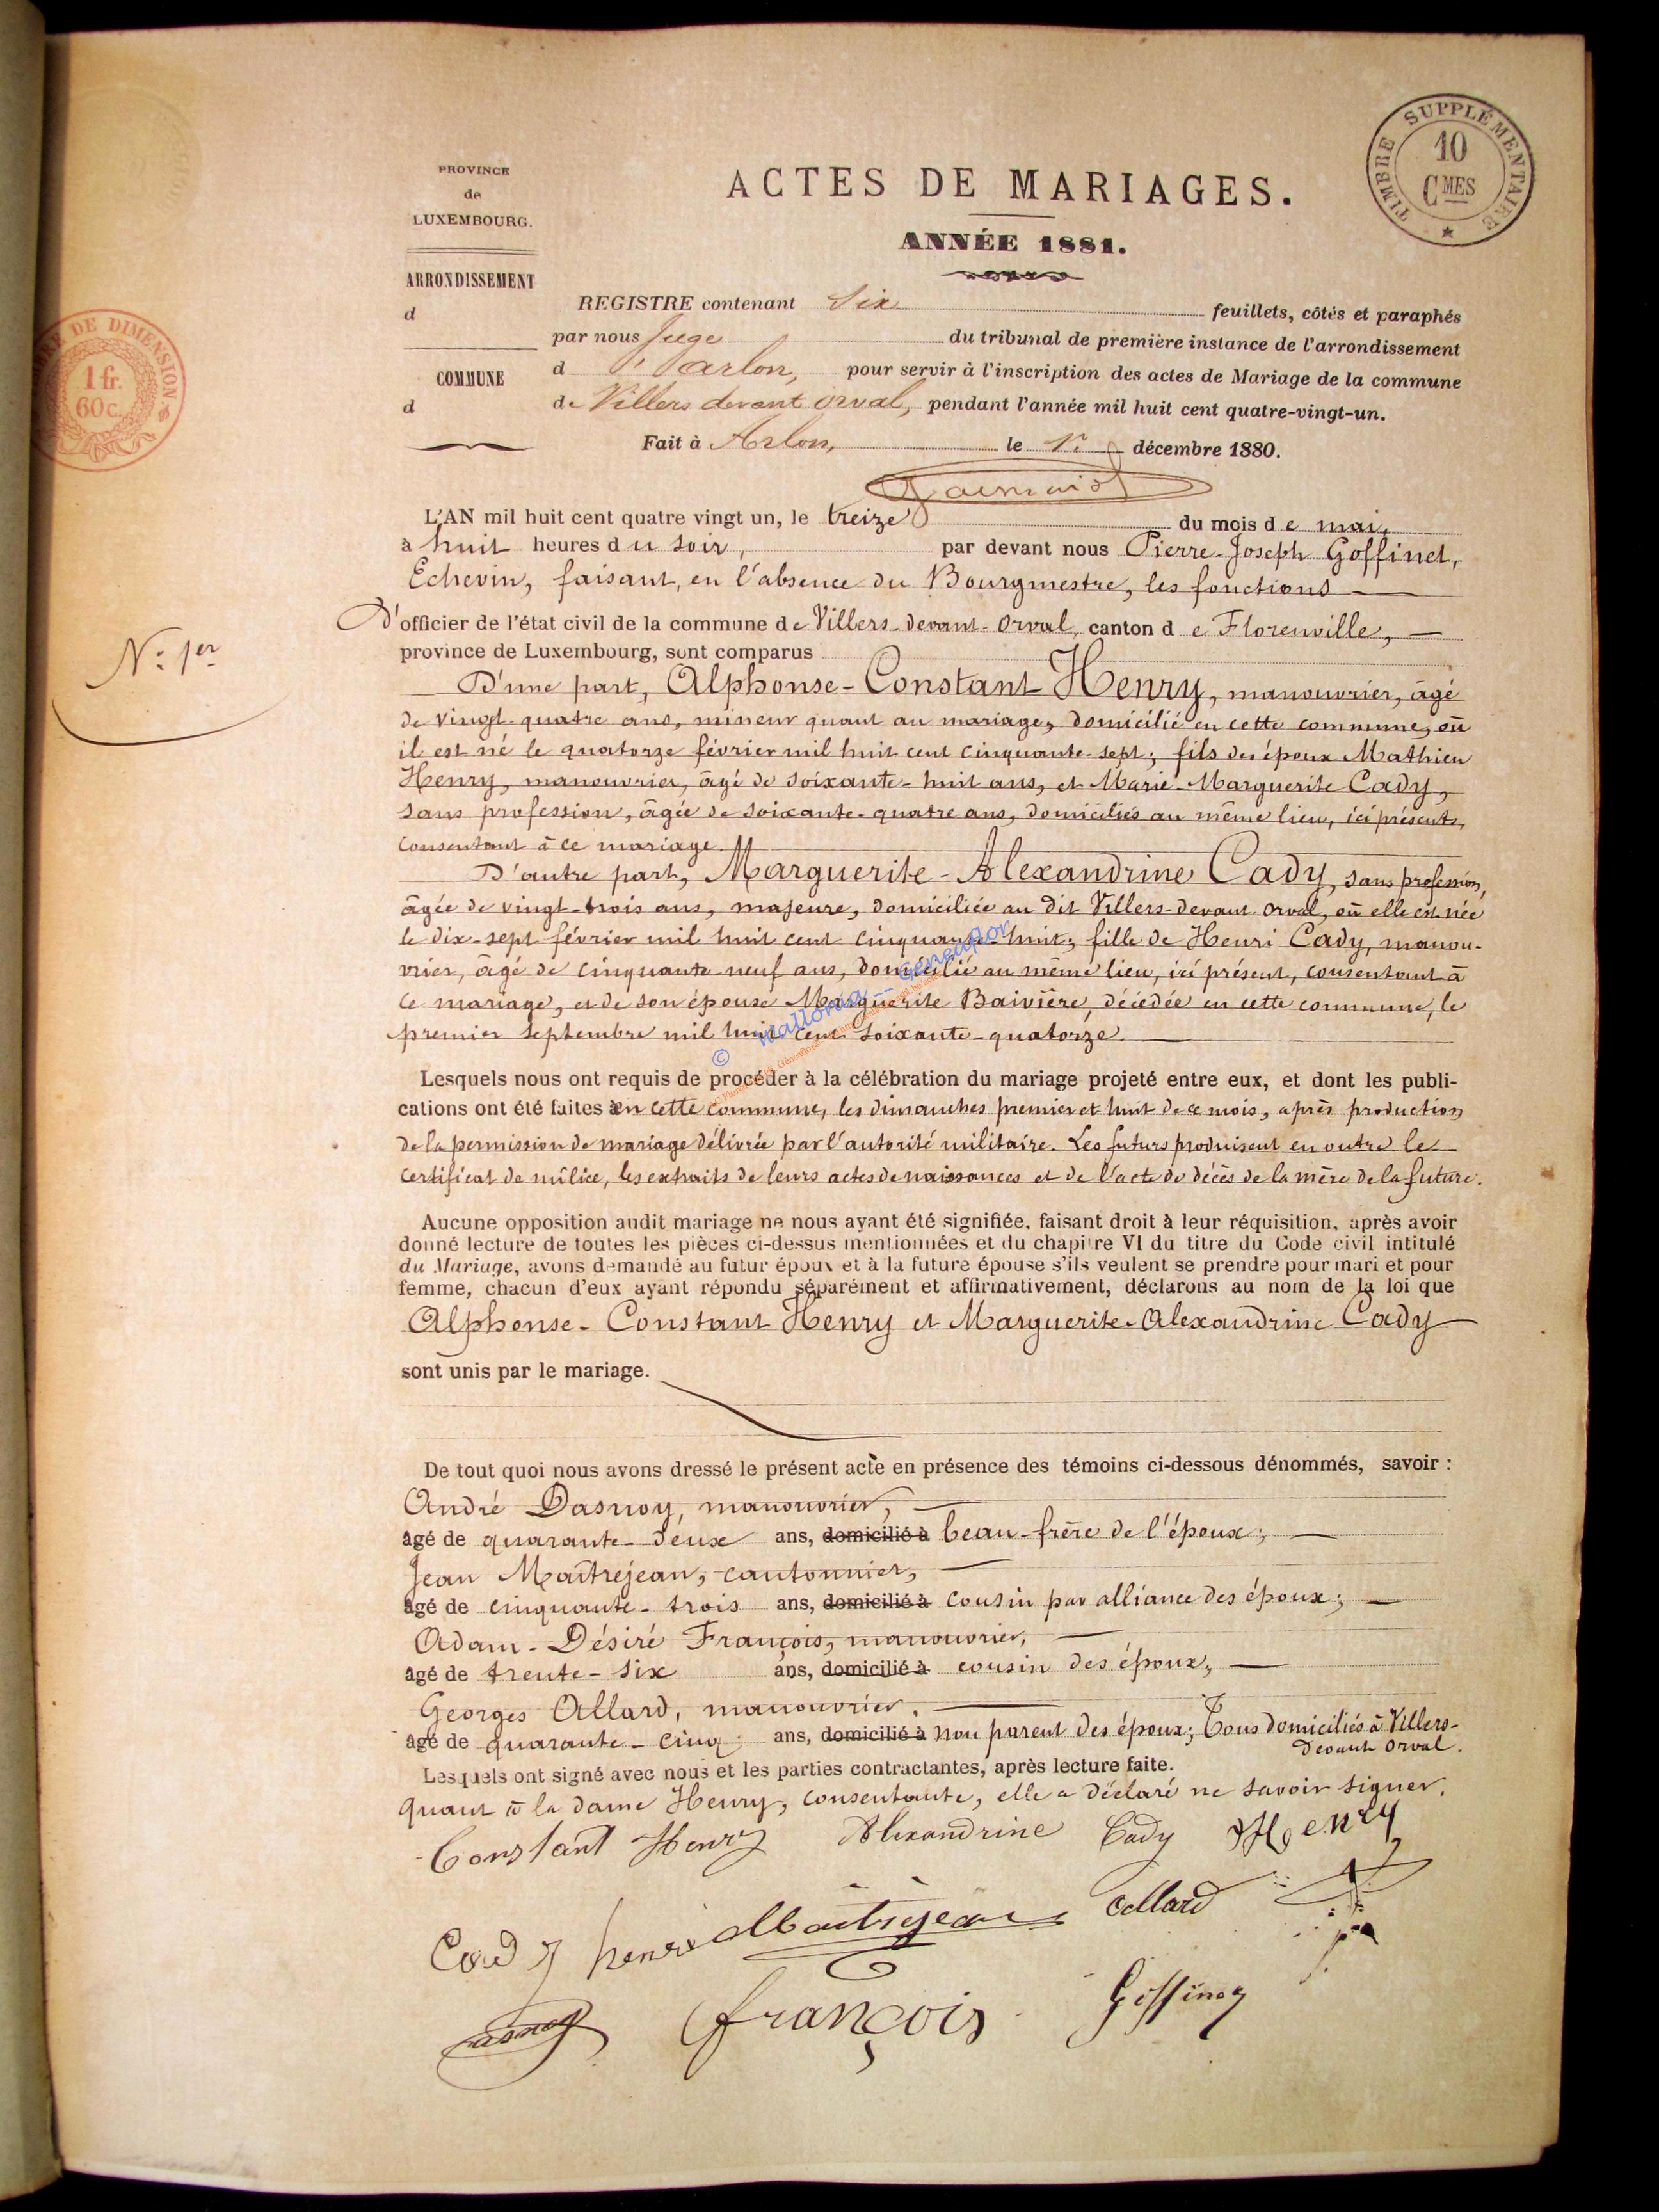 TIMBRE SUPPLÉMENTAIRE
10
CMES
PROVINCE
de
LUXEMBOURG.
ACTES DE MARIAGES.
ANNÉE 1881.
ARRONDISSEMENT
d
COMMUNE
d
DE DIMENSION
1 fr.
60 c.
REGISTRE contenant Six feuillets, côtés et paraphés
par nous Juge du tribunal de première instance de l'arrondissement
d'Arlon, pour servir à l'inscription des actes de Mariage de la commune
de Villers devant Orval, pendant l'année mil huit cent quatre-vingt-un.
Fait à Arlon, le 1r décembre 1880.
N° 1er
L'AN mil huit cent quatre vingt un, le treize du mois de mai,
à huit heures du soir, par devant nous Pierre-Joseph Goffinet,
Echevin, faisant, en l'absence du Bourgmestre, les fonctions
D'officier de l'état civil de la commune de Villers-devant-Orval, canton de Florenville,
province de Luxembourg, sont comparus
D'une part, Alphonse-Constant Henry, manouvrier, âgé
de vingt-quatre ans, mineur quant au mariage, domicilié en cette commune, où
il est né le quatorze février mil huit cent cinquante-sept; fils des époux Mathieu
Henry, manouvrier, âgé de soixante-huit ans, et Marie-Marguerite Cady,
sans profession, âgée de soixante-quatre ans, domiciliés au même lieu, ici présents,
consentant à ce mariage.
D'autre part, Marguerite-Alexandrine Cady, sans profession,
âgée de vingt-trois ans, majeure, domiciliée au dit Villers-devant-Orval, où elle est née
le dix-sept février mil huit cent cinquante-huit, fille de Henri Cady, manou-
vrier, âgé de cinquante-neuf ans, domicilié au même lieu, ici présent, consentant à
ce mariage, et de son épouse Marguerite Baivière, décédée en cette commune, le
premier septembre mil huit cent soixante-quatorze.
© wallonia - geneaflor
Lesquels nous ont requis de procéder à la célébration du mariage projeté entre eux, et dont les publi-
cations ont été faites en cette commune, les dimanches premier et huit de ce mois, après production
de la permission de mariage délivrée par l'autorité militaire. Les futurs produisent en outre le
certificat de milice, les extraits de leurs actes de naissances et de l'acte de décès de la mère de la future.
Aucune opposition audit mariage ne nous ayant été signifiée, faisant droit à leur réquisition, après avoir
donné lecture de toutes les pièces ci-dessus mentionnées et du chapitre VI du titre du Code civil intitulé
du Mariage, avons demandé au futur époux et à la future épouse s'ils veulent se prendre pour mari et pour
femme, chacun d'eux ayant répondu séparément et affirmativement, déclarons au nom de la loi que
Alphonse-Constant Henry et Marguerite-Alexandrine Cady
sont unis par le mariage.
De tout quoi nous avons dressé le présent acte en présence des témoins ci-dessous dénommés, savoir :
André Dasnoy, manouvrier,
agé de quarante-deux ans, domicilié à beau-frère de l'époux;
Jean Maîtrejean, cantonnier,
agé de cinquante-trois ans, domicilié à cousin par alliance des époux;
Adam-Désiré François, manouvrier,
agé de trente-six ans, domicilié à cousin des époux,
Georges Allard, manouvrier,
agé de quarante-cinq ans, domicilié à non parent des époux; Tous domiciliés à Villers-
devant Orval.
Lesquels ont signé avec nous et les parties contractantes, après lecture faite.
Quant à la dame Henry, consentante, elle a déclaré ne savoir signer.
Constant Henry Alexandrine Cady Henry
Cady henri Maîtrejean Allard
Dasnoy françois Goffinet